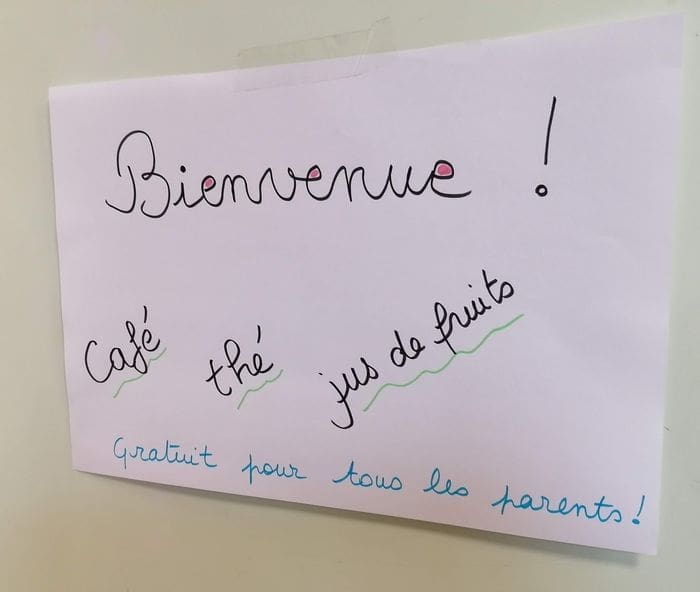 Bienvenue !
Café thé jus de fruits
Gratuit pour tous les parents !